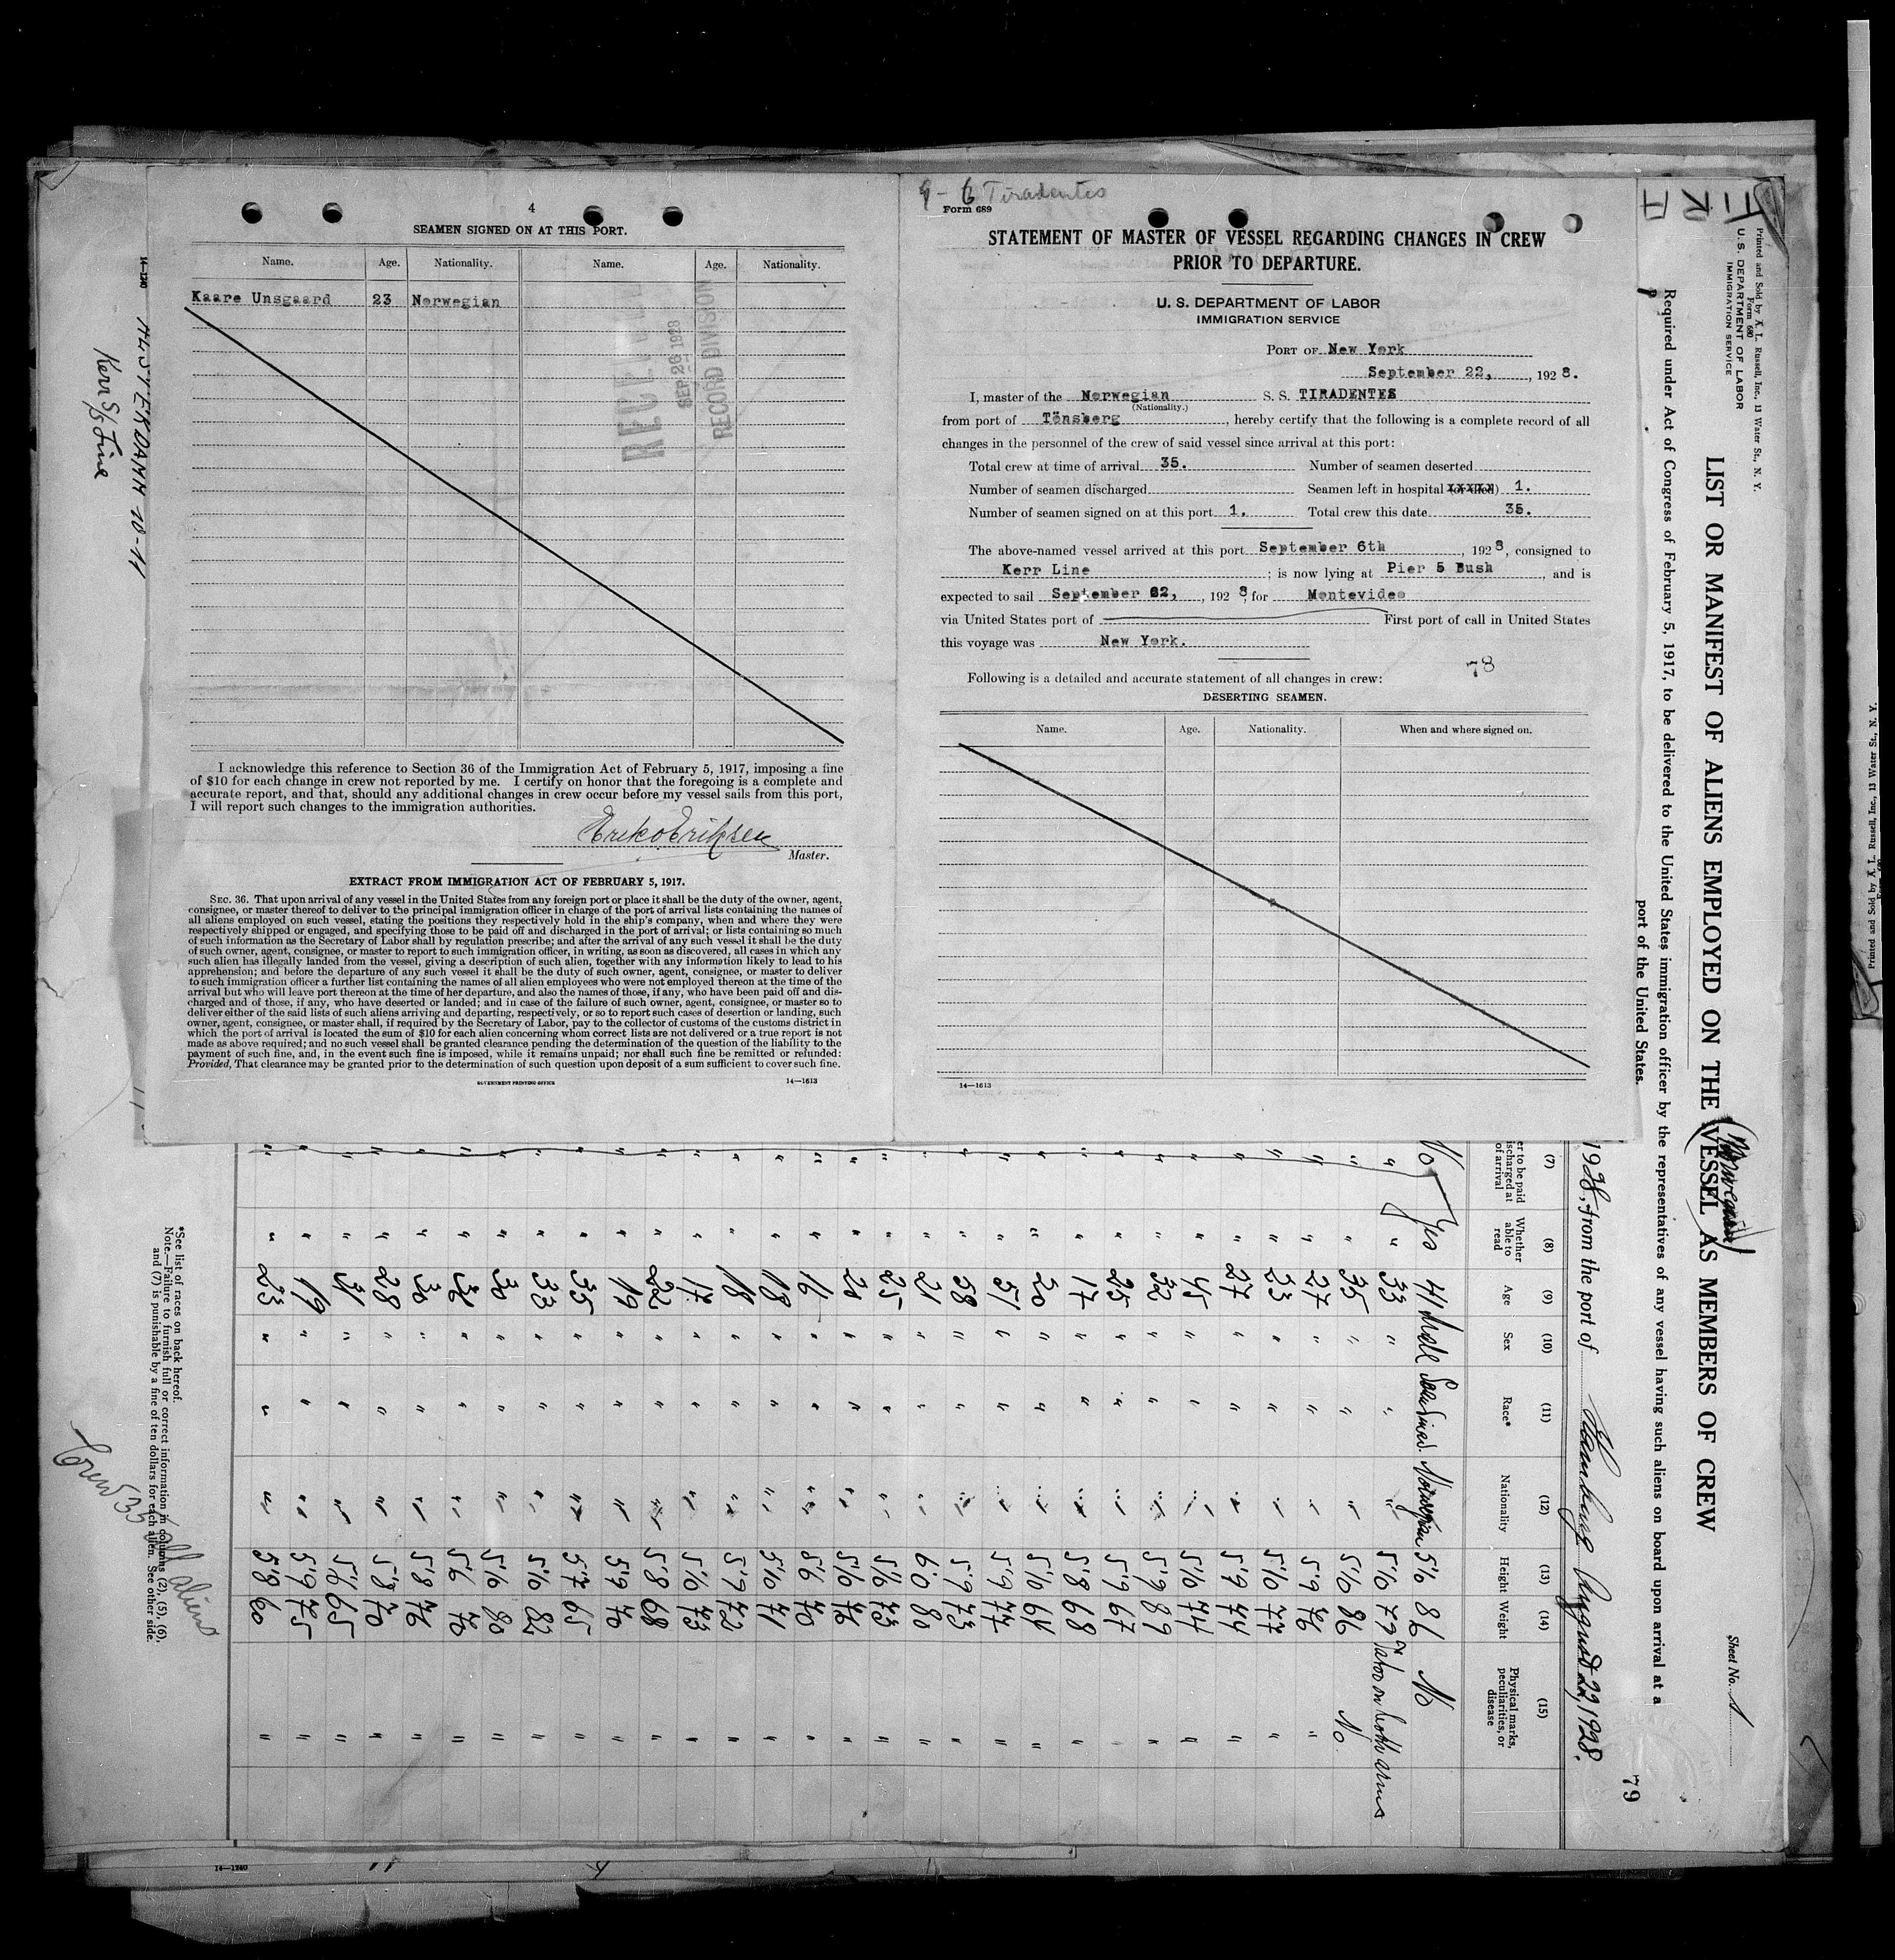 4
SEAMEN SIGNED ON AT THIS PORT.
Name. Age. Nationality. Name. Age. Nationality.
Kaare Unsgaard 23 Norwegian
SEP 26 1928
RECORD DIVISION
I acknowledge this reference to Section 36 of the Immigration Act of February 5, 1917, imposing a fine
of $10 for each change in crew not reported by me. I certify on honor that the foregoing is a complete and
accurate report, and that, should any additional changes in crew occur before my vessel sails from this port,
I will report such changes to the immigration authorities.
Master.
EXTRACT FROM IMMIGRATION ACT OF FEBRUARY 5, 1917.
SEC. 36. That upon arrival of any vessel in the United States from any foreign port or place it shall be the duty of the owner, agent,
consignee, or master thereof to deliver to the principal immigration officer in charge of the port of arrival lists containing the names of
all aliens employed on such vessel, stating the positions they respectively hold in the ship's company, when and where they were
respectively shipped or engaged, and specifying those to be paid off and discharged in the port of arrival; or lists containing so much
of such information as the Secretary of Labor shall by regulation prescribe; and after the arrival of any such vessel it shall be the duty
of such owner, agent, consignee, or master to report to such immigration officer, in writing, as soon as discovered, all cases in which any
such alien has illegally landed from the vessel, giving a description of such alien, together with any information likely to lead to his
apprehension; and before the departure of any such vessel it shall be the duty of such owner, agent, consignee, or master to deliver
to such immigration officer a further list containing the names of all alien employees who were not employed thereon at the time of the
arrival but who will leave port thereon at the time of her departure, and also the names of those, if any, who have been paid off and dis-
charged and of those, if any, who have deserted or landed; and in case of the failure of such owner, agent, consignee, or master so to
deliver either of the said lists of such aliens arriving and departing, respectively, or so to report such cases of desertion or landing, such
owner, agent, consignee, or master shall, if required by the Secretary of Labor, pay to the collector of customs of the customs district in
which the port of arrival is located the sum of $10 for each alien concerning whom correct lists are not delivered or a true report is not
made as above required; and no such vessel shall be granted clearance pending the determination of the question of the liability to the
payment of such fine, and, in the event such fine is imposed, while it remains unpaid; nor shall such fine be remitted or refunded:
Provided, That clearance may be granted prior to the determination of such question upon deposit of a sum sufficient to cover such fine.
GOVERNMENT PRINTING OFFICE 14—1613
9 - 6 Tiradentes
Form 689
STATEMENT OF MASTER OF VESSEL REGARDING CHANGES IN CREW
PRIOR TO DEPARTURE.
U. S. DEPARTMENT OF LABOR
IMMIGRATION SERVICE
PORT OF New York
September 22, , 1928.
I, master of the Norwegian S. S. TIRADENTES
(Nationality.)
from port of Tönsberg , hereby certify that the following is a complete record of all
changes in the personnel of the crew of said vessel since arrival at this port:
Total crew at time of arrival 35. Number of seamen deserted
Number of seamen discharged Seamen left in hospital 1.
Number of seamen signed on at this port 1. Total crew this date 35.
The above-named vessel arrived at this port September 6th , 1928, consigned to
Kerr Line ; is now lying at Pier 5 Bush , and is
expected to sail September 22, , 1928, for Montevideo
via United States port of First port of call in United States
this voyage was New York.
78
Following is a detailed and accurate statement of all changes in crew:
DESERTING SEAMEN.
Name. Age. Nationality. When and where signed on.
14—1613
TIRA
Printed and Sold by A. L. Russell, Inc., 13 Water St., N. Y.
Form 680
U. S. DEPARTMENT OF LABOR
IMMIGRATION SERVICE
Sheet No. 1
LIST OR MANIFEST OF ALIENS EMPLOYED ON THE VESSEL AS MEMBERS OF CREW
(Norwegian)
Required under Act of Congress of February 5, 1917, to be delivered to the United States immigration officer by the representatives of any vessel having such aliens on board upon arrival at a
port of the United States.
79
1928, from the port of Hamburg August 22, 1928.
(7) (8) (9) (10) (11) (12) (13) (14) (15)
Whether able to read Age Sex Race* Nationality Height Weight Physical marks, peculiarities, or disease
No Yes 41 Male Norwegian 5'10 86 No
" " 33 " " " 5'10 79 Tatoo on both arms
" " 35 " " " 5'10 86 No
" " 27 " " " 5'9 76 "
" " 23 " " " 5'10 77 "
" " 27 " " " 5'9 74 "
" " 45 " " " 5'10 74 "
" " 32 " " " 5'9 89 "
" " 25 " " " 5'9 67 "
" " 17 " " " 5'8 68 "
" " 20 " " " 5'10 64 "
" " 51 " " " 5'9 77 "
" " 58 " " " 5'9 73 "
" " 21 " " " 6'0 80 "
" " 25 " " " 5'6 73 "
" " 20 " " " 5'10 76 "
" " 16 " " " 5'6 70 "
" " 18 " " " 5'10 71 "
" " 18 " " " 5'9 72 "
" " 17 " " " 5'10 73 "
" " 22 " " " 5'8 68 "
" " 19 " " " 5'9 70 "
" " 35 " " " 5'7 65 "
" " 33 " " " 5'10 82 "
" " 30 " " " 5'10 80 "
" " 36 " " " 5'6 70 "
" " 30 " " " 5'8 76 "
" " 28 " " " 5'8 70 "
" " 31 " " " 5'6 65 "
" " 19 " " " 5'9 75 "
" " 23 " " " 5'8 60 "
*See list of races on back hereof.
Note.—Failure to furnish full or correct information in columns (2), (5), (6),
and (7) is punishable by a fine of ten dollars for each alien. See other side.
Crew 35 all aliens
14—1240
Kerr S/S Line
14—1240
Printed and Sold by A. L. Russell, Inc., 13 Water St., N. Y.